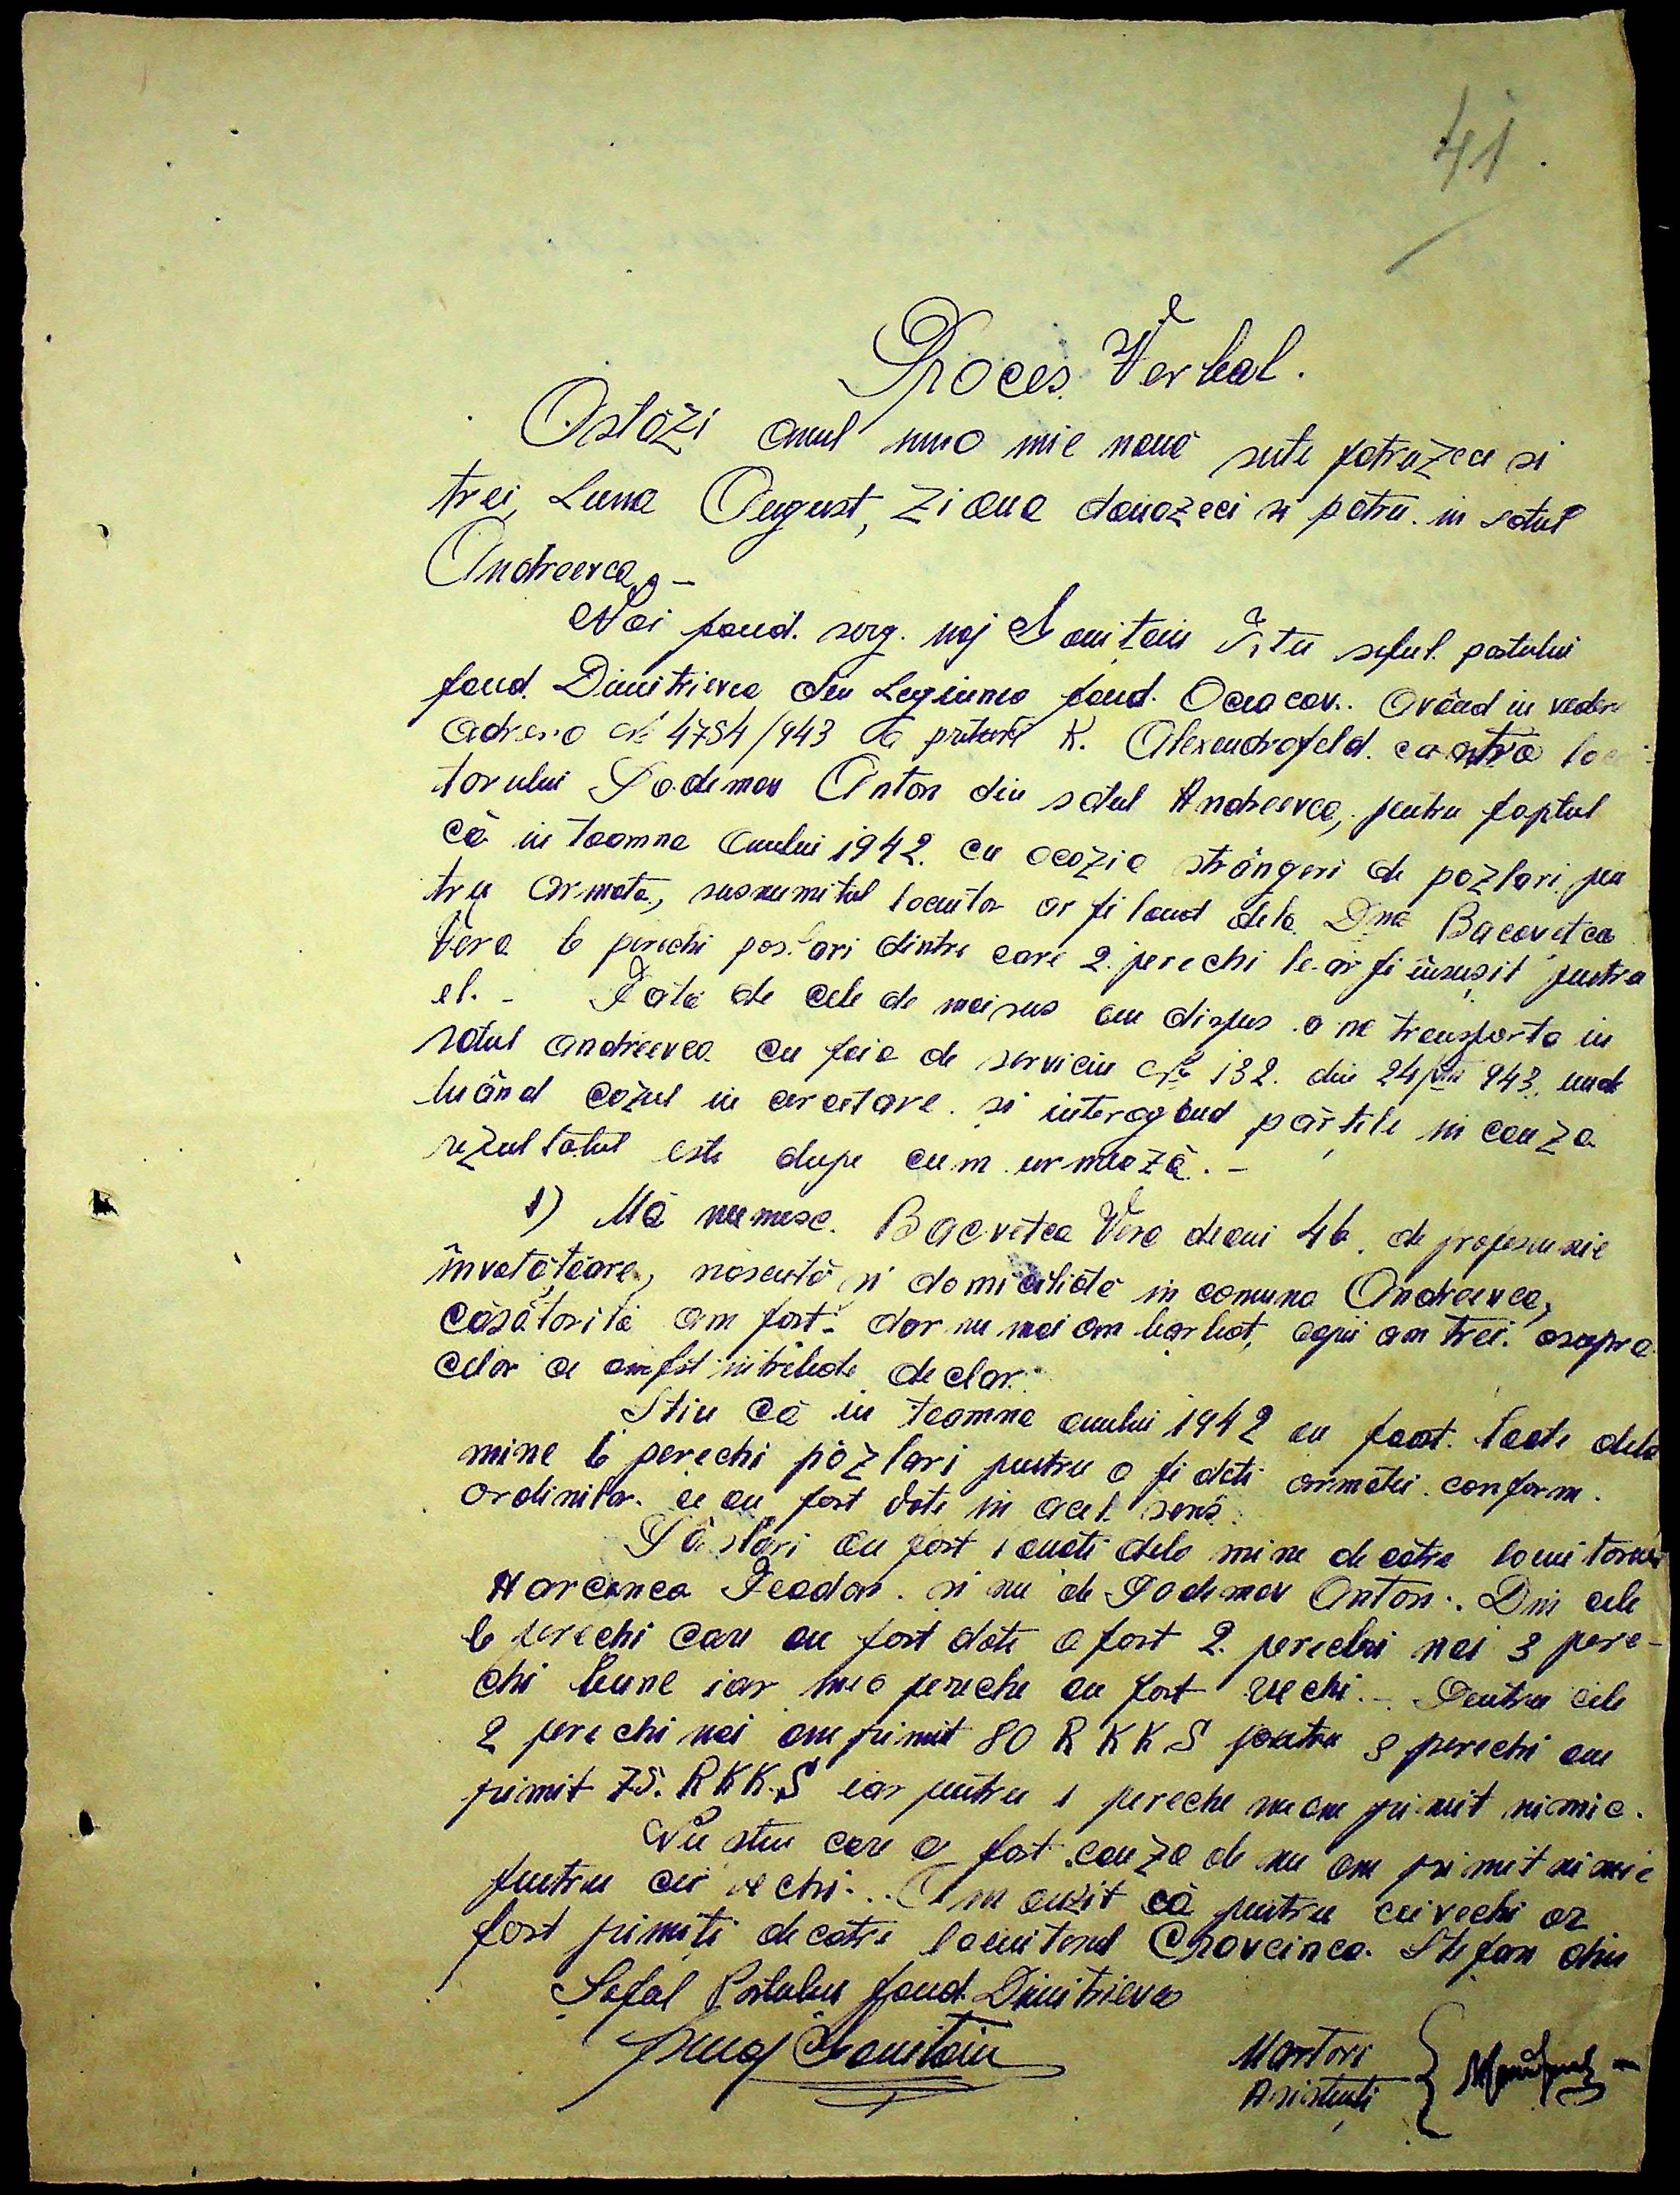 41
Proces Verbal.
Astăzi anul una mie nouă sute patruzeci si
trei, Luna August, Ziua douazeci si patru in satul
Andreevca. –
Noi jand. serg. maj Itu seful postului
jand. Dimitrievca din Legiunea jand. Oceacov.. având in vedere
adresa № 4754/943 a preturii K. Alexandrofeld. contra locui-
torului Podemov Anton din satul Andreevca, pentru faptul
că in toamna anului 1942. cu ocazia strângeri de pozlari pen
tru armata, susnumitul locuitor ar fi luat dela Dna Bacovetca
Vera 6 perechi poslari dintre care 2. perechi le-ar fi însușit pentru
el. – Fată de cele de mai sus am dispus a ne transporta in
satul andreevca cu foia de serviciu № 132. din 24/VIII 943. unde
luând cazul in cercetare. si interogând părțile in cauza
rezultatul este dupe cum urmează. –
1) Mă numesc. Bacvetca Vera de ani 46. de profesiunie
învatătoare, născută si domiciliată in comuna Andreevca,
căsătorită am fost. dar nu mai am barbat, copii am trei. asupra
celor ce am fst intrebată declar.
Stiu că in toamna anului 1942 au fost. luate dela
mine 6 perechi pozlari pentru a fi dati armatei. conform.
ordinilor. ce au fost date in acel sens.
Păslari au fost luati dela mine de către locuitorul
Harcenca Feodor. si nu de Podemov Anton.. Din cele
6 perechi care au fost date a fost 2. perechi noi 3 pere-
chi bune iar una pereche au fost vechi. – Pentru cele
2 perechi noi am primit 80 RKKS pentru 3 perechi am
primit 75. RKK.S iar pentru 1 pereche nu am primit nimic.
Nu stiu care a fost cauza de nu am primit nimic
pentru cei vechi... Am auzit că pentru cei vechi ar
fost primiti de catre locuitorul Stefan din
Seful Postului jand. Dimitrievca
Martori
Asistenti